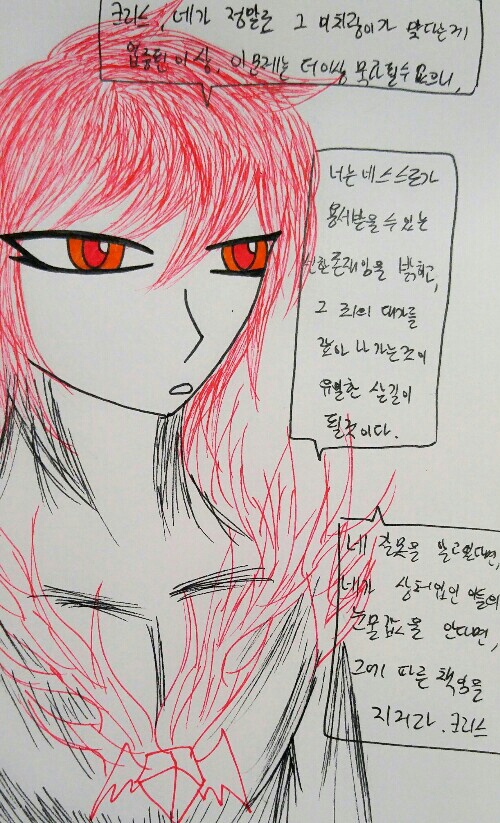 크리스, 네가 정말로 그 미치광이가 맞다는게
입증된 이상, 이 문제는 더이상 묵과 될수 없으니,
너는 네 스스로가
용서받을 수 있는
존재임을 밝히고,
그 죄의 대가를
갚아 나가는 것이
유일한 살길이
될것이다.
네 잘못을 알고있다면,
네가 상처입힌 이들의
눈물값을 안다면,
그에 따른 책임을
지거라. 크리스